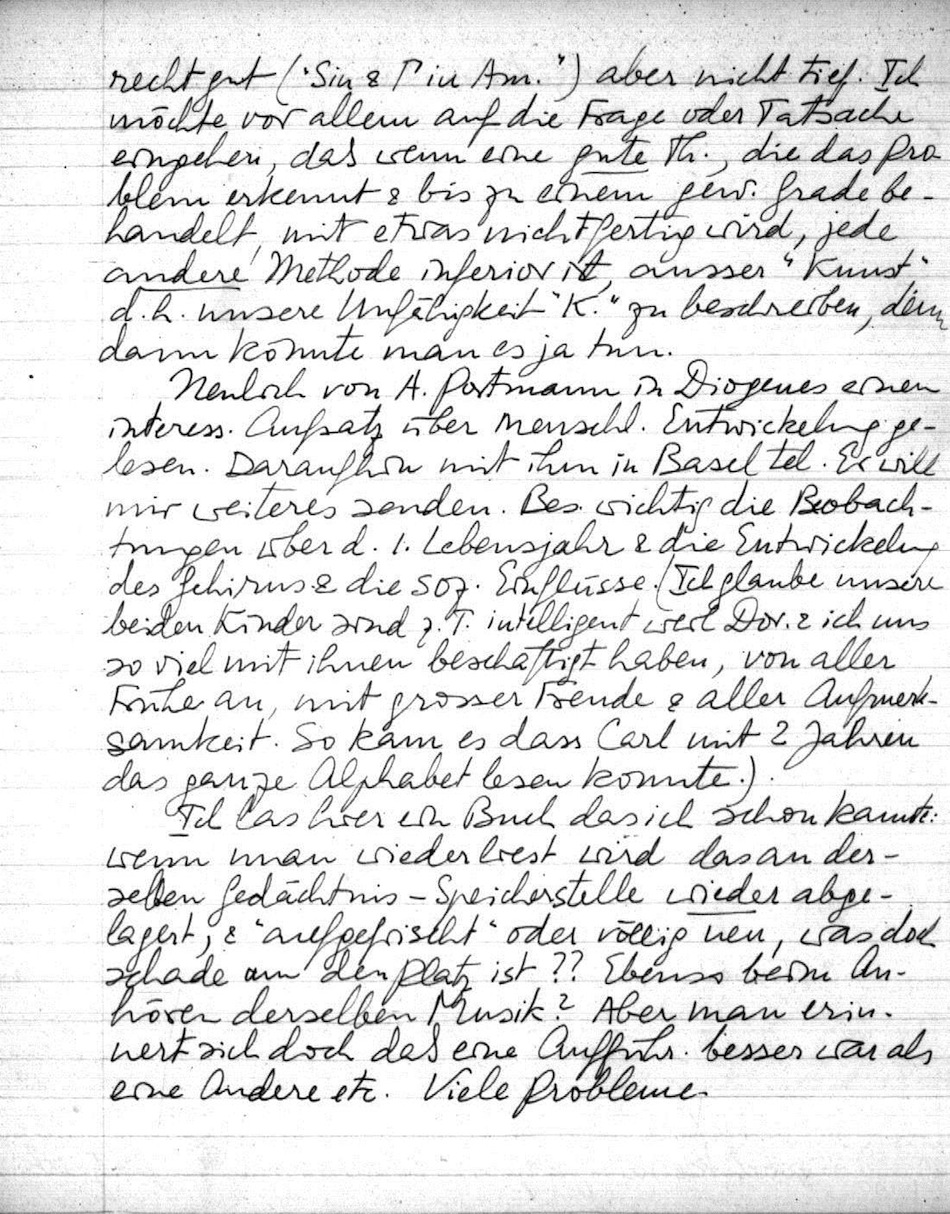 recht gut ("Sin & Γ in Am.") aber nicht tief. Ich
möchte vor allem auf die Frage oder Tatsache
eingehen, das wenn eine gute Th., die das Pro-
blem erkennt & bis zu einem gew. Grade be-
handelt, mit etwas nicht fertig wird, jede
andere Methode inferior ist, ausser "Kunst"
d.h. unsere Unfähigkeit "K." zu beschreiben, denn
dann könnte man es ja tun.
Neulich von A. Portmann in Diogenes einen
interess. Aufsatz über menschl. Entwickelung ge-
lesen. Daraufhin mit ihm in Basel tel. Er will
mir weiteres senden. Bes. wichtig die Beobach-
tungen über d. 1. Lebensjahr & die Entwickelung
des Gehirns & die soz. Einflüsse. (Ich glaube unsere
beiden Kinder sind z.T. intelligent weil Dor. & ich uns
so viel mit ihnen beschäftigt haben, von aller
Frühe an, mit grosser Freude & aller Aufmerk-
samkeit. So kam es dass Carl mit 2 Jahren
das ganze Alphabet lesen konnte.).
Ich las hier ein Buch das ich schon kannte:
wenn man wiederliest wird das an der-
selben Gedächtnis-Speicherstelle wieder abge-
lagert, & "aufgefrischt" oder völlig neu, was doch
schade um den Platz ist?? Ebenso beim An-
hören derselben Musik? Aber man erin-
nert sich doch das eine Aufführ. besser war als
eine Andere etc. Viele Probleme.